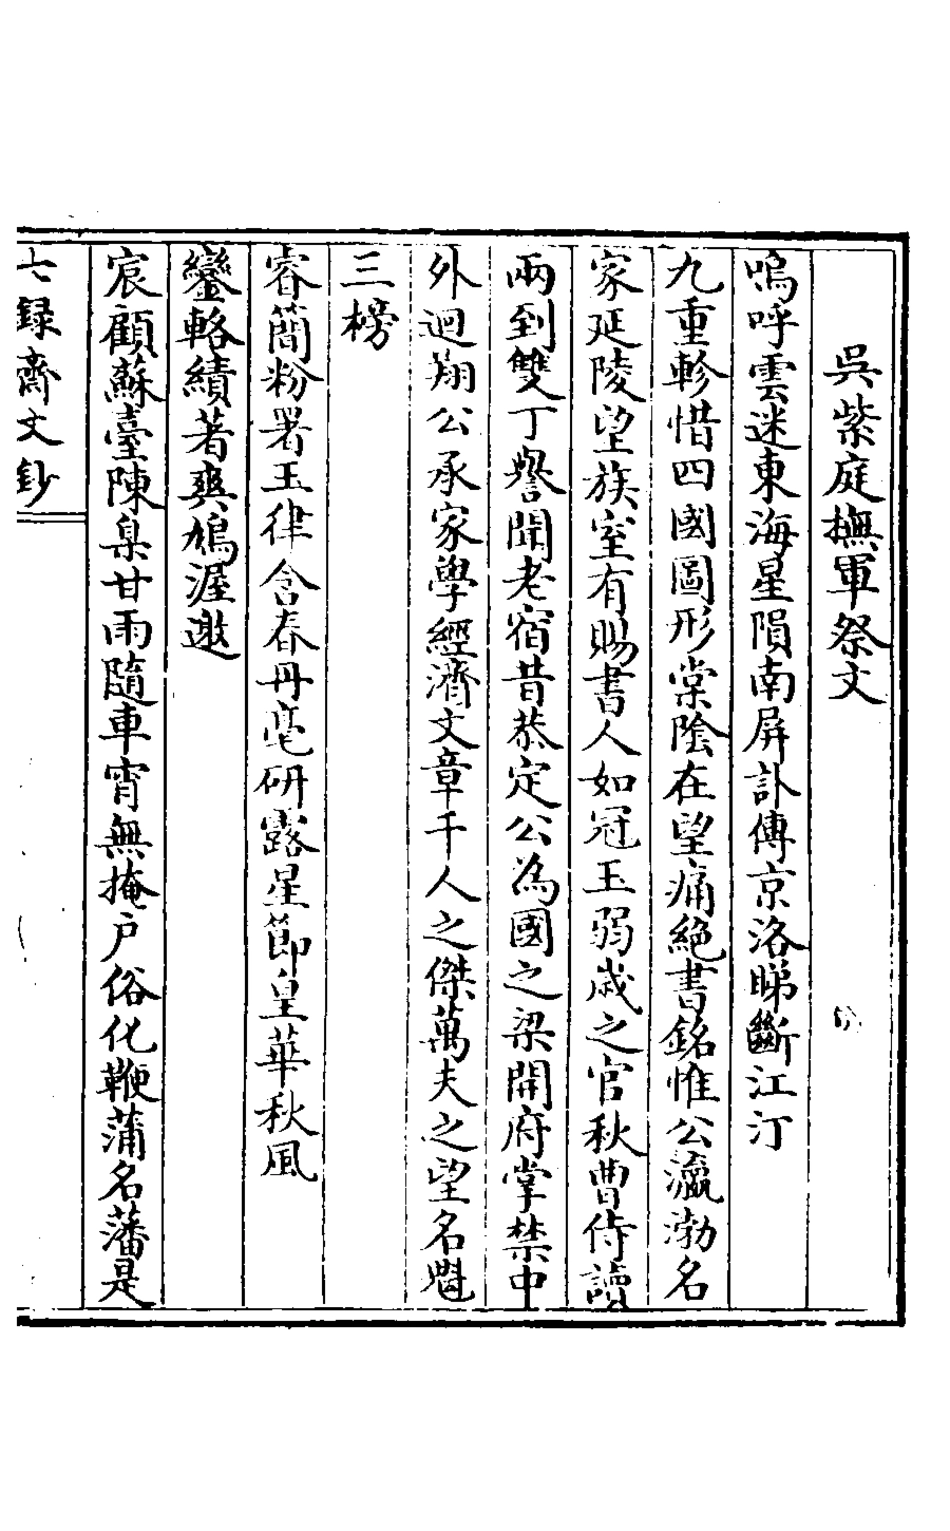 吳紫庭撫軍祭文
嗚呼雲迷東海星隕南屏訃傳京洛睇斷江汀
九重軫惜四國圖形棠陰在望痛絕書銘惟公瀛渤名
家延陵望族室有賜書人如冠玉弱歲之官秋曹侍讀
兩到雙丁譽聞老宿昔恭定公為國之梁開府掌禁中
外迴翔公承家學經濟文章千人之傑萬夫之望名魁
三榜
睿簡粉署玉律含春丹毫研露星節皇華秋風
鑾輅績著爽鳩渥邀
宸顧蘇臺陳臬甘雨隨車宵無掩户俗化鞭蒲名藩是
七錄齋文鈔